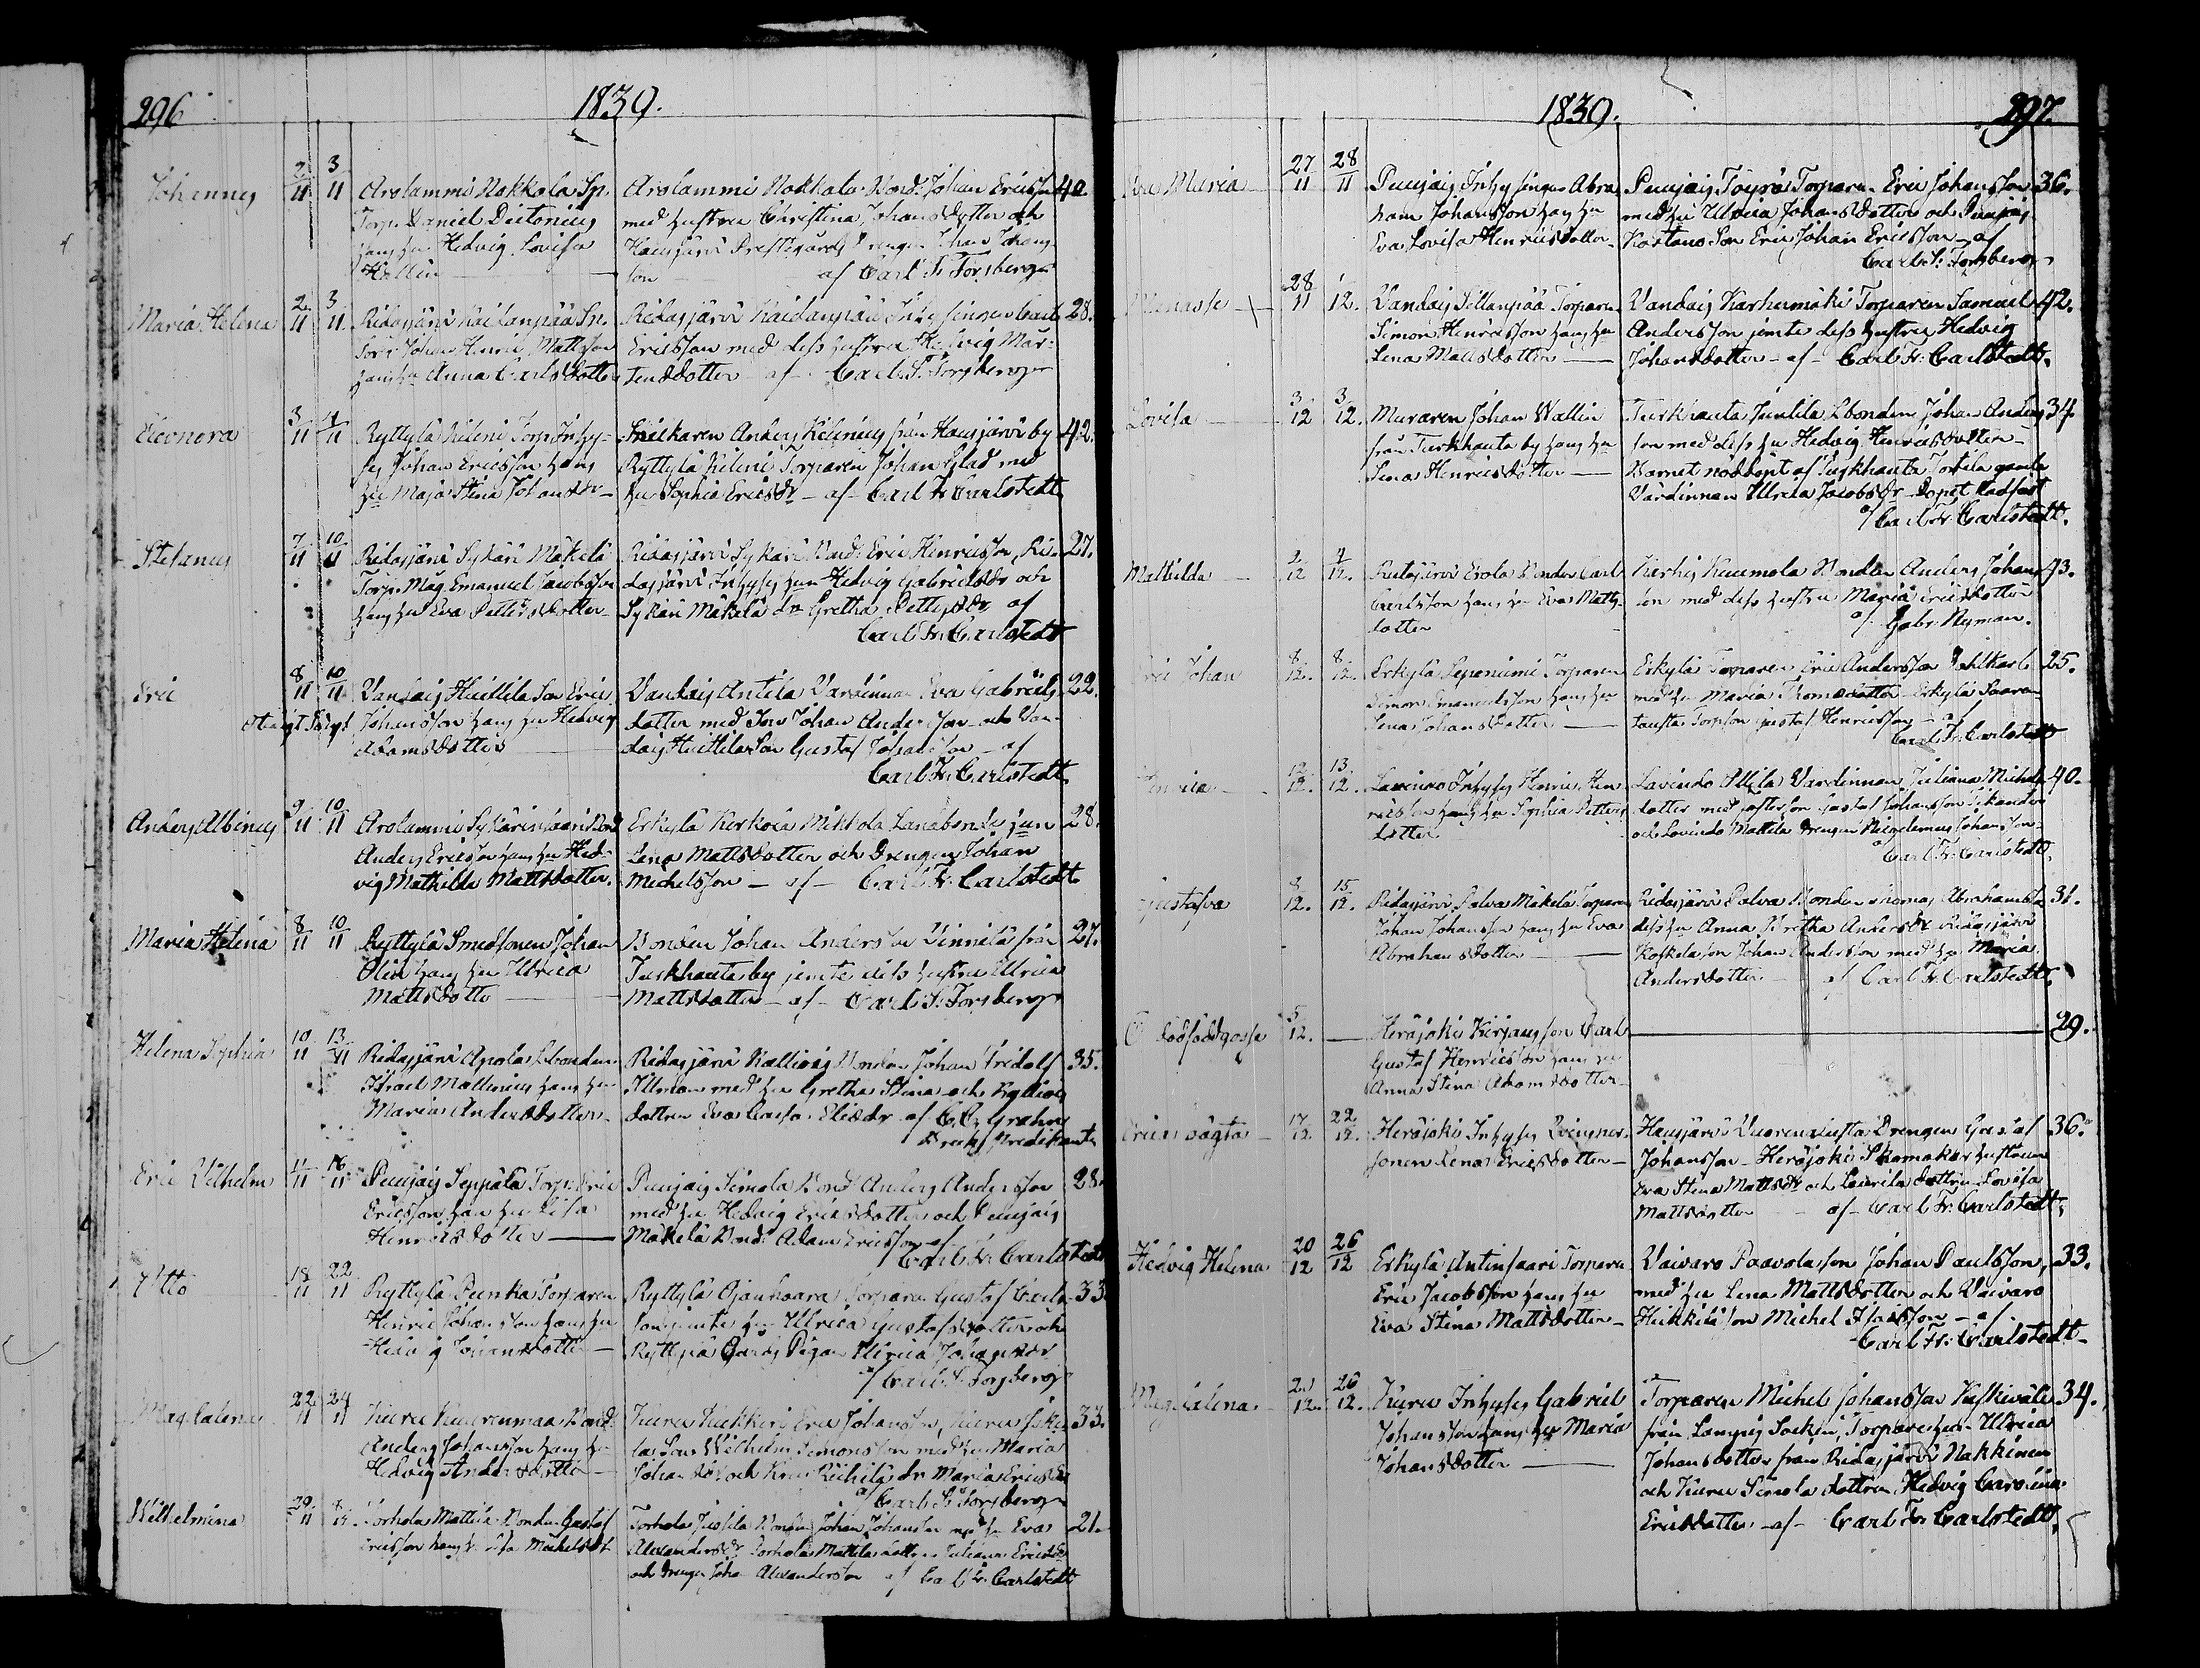 296
1839.
Johannes 2/11 3/11 Arolammi Nokkola Sp.
Torp. Daniel Dictonius
hans hu Hedvig Lovisa
Arolammi Nokkola Bond. Johan Ericsson 40.
med hustru Christina Johansdotter och
Hausjärvi Prestgårds Drengen Johan Johans
son af Carl F. Forsberg
Maria Helena 2/11 3/11 Ridasjärvi Kaidanpää Sp.
Johan Henric Mattsson
hans hu Anna Carlsdotter
Ridasjärvi Kaidanpää Inhysingen Carl 28.
Ericsson med dess hustru Hedvig Mår-
tensdotter af Carl F. Forsberg
Eleonora 3/11 4/11 Ryttylä Kileni Torp Inhy-
ses Johan Ericsson hans
hu Maja Stina Johansdr
Anders Kilenius från Hausjärvi by 42.
Ryttylä Kileni Torparen Johan Glad med
hu Sophia Ericsdr af Carl Fr. Carlstedt
Stefanus 7/11 10/11 Ridasjärvi Sykäri Mäkelä
Torp. Måg Emanuel Jacobsson
hans hu Eva Pettersdotter
Ridasjärvi Sykäri Bond. Eric Henricsson, Ri- 27.
dasjärvi Inhyses hun Hedvig Gabrielsdr och
Sykäri Mäkelä dr Gretha Pettersdr af
Carl Fr. Carlstedt
Eric 8/11 10/11 Vandais Huittila Son Eric
Johansson hans hu Hedvig
Adamsdotter
Vandais Antila Värdinna Eva Gabriels- 22.
dotter med Son Johan Andersson och Van-
dais Huittila Son Gustaf Johansson af
Carl Fr. Carlstedt
Anders Albinus 9/11 10/11 Arolammi Sykärinsaari Bond
Anders Ericsson hans hu Hed-
vig Mathilda Mattsdotter.
Erkylä Kerkola Mikkola Landbondes hun 28.
Lena Mattsdotter och Drengen Johan
Michelsson af Carl Fr. Carlstedt
Maria Helena 8/11 10/11 Ryttylä Smedsonen Johan
Olin hans hu Ulrica
Mattsdotter
Bonden Johan Andersson Vinnilä från 27.
Turkhauta by jemte dess hustru Ulrica
Mattsdotter af Carl F. Forsberg
Helena Sophia 10/11 13/11 Ridasjärvi Apola Lbonden
Israel Mattenius hans hu
Maria Andersdotter
Ridasjärvi Kallions Bonden Johan Fridolf 35.
Illman med hu Gretha Stina och Kallions
dottren Eva Caisa Eliædr af C. C. Grahn
Bruks Predikant
Eric Vilhelm 11/11 16/11 Punjais Seppälä Torp. Eric
Ericsson hans hu Lisa
Henricsdotter
Punjais Simola Bond Anders Andersson 28.
med hu Hedvig Ericsdotter och Punjais
Mäkelä Bond. Adam Ericsson af
Carl Fr. Carlstedt
Otto 18/11 22/11 Ryttylä Punka Torparen
Henric Johansson hans hu
Hedvig Johansdotter
Ryttylä Ojanhaara Torparen Gustaf Carls- 33.
son jemte hu Ulrica Gustafsdotter och
Ryttylä Gårds Pigan Ulrica Johansdr
af Carl F. Forsberg
Magdalena 22/11 24/11 Kuru Bond
Anders Johansson hans hu
Hedvig Andersdotter
Kuru Eric Johansson, Kuru 33.
la Son Wilhelm Simonsson med hu Maria
Johansdr och Kuru dr Maria Ericsdr
af Carl F. Forsberg
Wilhelmina 29/11 8/12 Torhola Mattila Bonden Gustaf
Ericsson hans hu Lisa Michelsdr
Torhola Jussila Bonden Johan Johansson med hu Eva 21.
Alexandersdr Torhola Mattila dotter Juliana Ericsdr
och Drengen Johan Alexandersson af Carl Fr. Carlstedt
1839.
297
Eva Maria 27/11 28/11 Punjais Inhysingen Abra-
ham Johansson hans hu
Eva Lovisa Henricsdotter
Punjais Töyrä Torparen Eric Johansson 36.
med hu Ulrica Johansdotter och Punjais
Son Eric Johan Ericsson af
Carl F. Forsberg
Manasse 28/11 12. Vandais Sillanpää Torparen
Simon Henricsson hans hu
Lena Mattsdotter
Vandais Karhumäki Torparen Samuel 42.
Andersson jemte dess hustru Hedvig
Johansdotter af Carl Fr. Carlstedt.
Lovisa 3/12 3/12. Muraren Johan Wallin
från Turkhauta by hans hu
Lena Henricsdotter
Turkhauta Junttila Lbonden Johan Anders- 34.
son med dess hu Hedvig Henricsdotter
Barnet nöddöpt af Turkhauta gamla
Värdinnan Ulrica Jacobsdr Dopet stadfäst
af Carl Fr. Carlstedt.
Mathilda 2/12 4/12. Erola Bonden Carl
Carlsson hans hu Eva Matts-
dotter
Karhis Kuumola Bonden Anders Johans- 43.
son med dess hustru Maria Ericsdotter
af Gabr. Nyman.
Eric Johan 8/12. 8/12. Erkylä Leponiemi Torparen
Simon Emanuelsson hans hu
Lena Johansdotter
Erkylä Torparen Eric Andersson 25.
med hu Maria Thomasdotter Erkylä
Torpson Gustaf Henricsson af
Carl Fr. Carlstedt
Henrica 12/12. 13/12. Lavinto Inhyses Henric Hen-
ricsson hans hu Sophia Petters-
dotter
Lavinto Ulla Värdinnan Juliana Michels- 40.
dotter med Gustaf Johansson Sikander
och Lavinto Mattila Drengen Johansson
af Carl Fr. Carlstedt.
Gustafva 8/12. 15/12. Ridasjärvi Salva Mäkelä Torparen
Johan Johansson hans hu Eva
Abrahamsdotter
Ridasjärvi Salva Bonden Thomas Abrahamsson 31.
dess hu Anna Gretha Andersdr Ridasjärvi
Koskela son Johan Andersson med hu Maria
Andersdotter af Carl Fr. Carlstedt.
dödfödd gosse 5/12. Heräjoki Kirjans son Carl 29.
Gustaf Henricsson hans hu
Anna Stina Adamsdotter
oägta 17/12. 22/12. Heräjoki Inhyses Qvinspers-
sonen Lena Ericsdotter
Hausjärvi Drengen Gustaf 36.
Johansson Heräjoki Skomakar hustrun
Eva Stina Mattsdr och dottren Lovisa
Mattsdotter af Carl Fr. Carlstedt.
Hedvig Helena 20/12 26/12 Erkylä Antinsaari Torparen
Eric Jacobsson hans hu
Eva Stina Mattsdotter
Vaivaro Paavola son Johan Paulsson, 33.
med hu Lena Mattsdotter och Vaivaro
Heikkilä son Michel Isaksson af
Carl Fr. Carlstedt
Magdalena 21/12. 26/12. Kuru Inhyses Gabriel
Johansson hans hu Maria
Johansdotter
Torparen Michel Johansson 34.
från Lampis Sockn, Torpare hun Ulrica
Johansdotter från Ridasjärvi Nakkinen
och Kuru Simola dottren Hedvig Carolina
Ericsdotter af Carl Fr. Carlstedt.